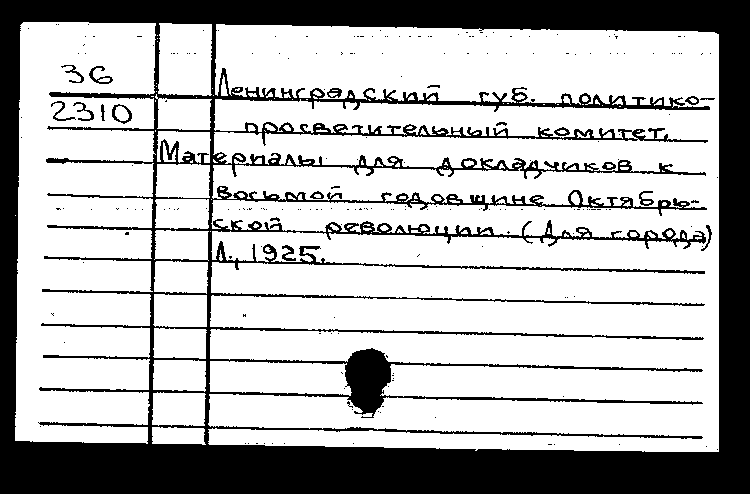 36
2310
Ленинградский губ. политико-
просветительный комитет.
Материалы для докладчиков к
восьмой годовщине Октябрь-
ской революции. (Для города)
Л., 1925.